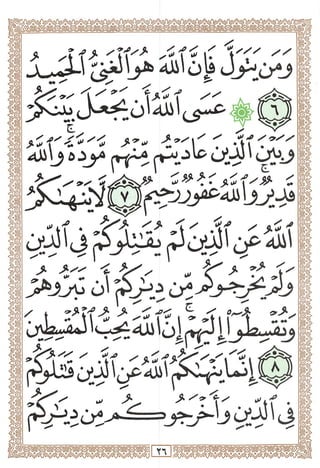 وَمَن يَتَوَلَّ فَإِنَّ ٱللَّهَ هُوَ ٱلْغَنِىُّ ٱلْحَمِيدُ
٦ ۞ عَسَى ٱللَّهُ أَن يَجْعَلَ بَيْنَكُمْ
وَبَيْنَ ٱلَّذِينَ عَادَيْتُم مِّنْهُم مَّوَدَّةً ۚ وَٱللَّهُ
قَدِيرٌ ۚ وَٱللَّهُ غَفُورٌ رَّحِيمٌ ٧ لَّا يَنْهَىٰكُمُ
ٱللَّهُ عَنِ ٱلَّذِينَ لَمْ يُقَـٰتِلُوكُمْ فِى ٱلدِّينِ
وَلَمْ يُخْرِجُوكُم مِّن دِيَـٰرِكُمْ أَن تَبَرُّوهُمْ
وَتُقْسِطُوٓا۟ إِلَيْهِمْ ۚ إِنَّ ٱللَّهَ يُحِبُّ ٱلْمُقْسِطِينَ
٨ إِنَّمَا يَنْهَىٰكُمُ ٱللَّهُ عَنِ ٱلَّذِينَ قَـٰتَلُوكُمْ
فِى ٱلدِّينِ وَأَخْرَجُوكُم مِّن دِيَـٰرِكُمْ
٢٦